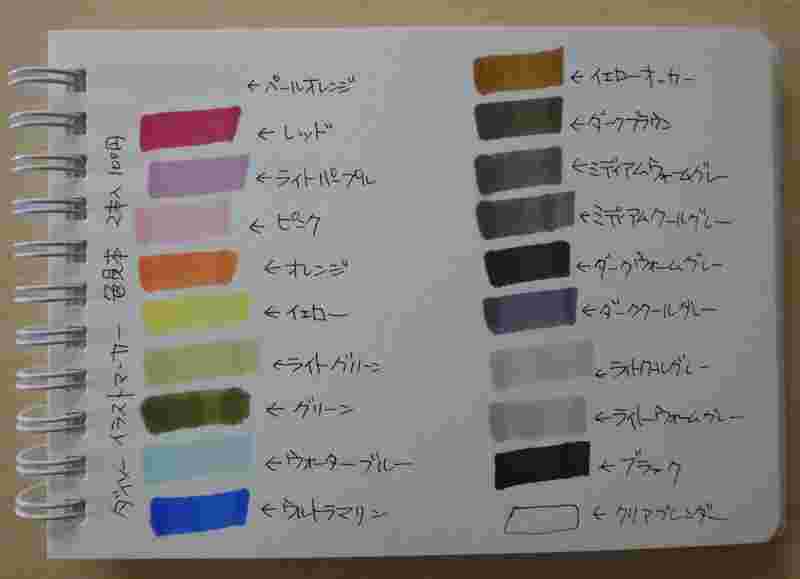 ダイソー イラストマーカー 色見本 2本入 100円
←ペールオレンジ
←レッド
←ライトパープル
←ピンク
←オレンジ
←イエロー
←ライトグリーン
←グリーン
←ウォーターブルー
←ウルトラマリン
←イエローオーカー
←ダークブラウン
←ミディアムウォームグレー
←ミディアムクールグレー
←ダークウォームグレー
←ダーククールグレー
←ライトクールグレー
←ライトウォームグレー
←ブラック
←クリアブレンダー